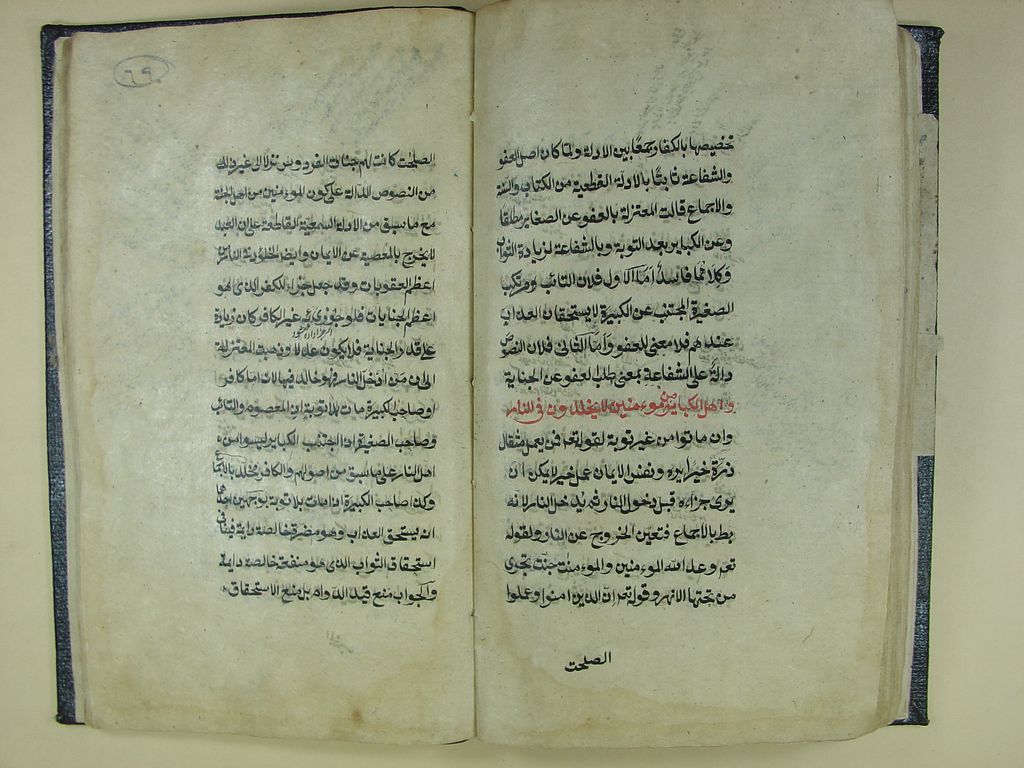 تخصيصها بالكفار جمعًا بين الادلة ولما كان اصل العفو
والشفاعة ثابتًا بالادلة القطعية من الكتاب والسنة
والاجماع قالت المعتزلة بالعفو عن الصغاير مطلقا
وعن الكباير بعد التوبة وبالشفاعة لزيادة الثواب
وكلاهما فاسد اما الاول فلان التائب ومرتكب
الصغيرة المجتنب عن الكبيرة لا يستحقان العذاب
عندهم فلا معنى للعفو واما الثانى فلان النصوص
دالة على الشفاعة بمعنى طلب العفو عن الجناية
واهل الكباير من الموءمنين لا يخلدون فى النار
وان ماتوا من غير توبة لقوله تعم فمن يعمل مثقال
ذرة خيرا يره ونفس الايمان عمل خير لا يمكن ان
يرى جزاءه قبل دخول النار ثم يدخل النار لانه
بط بالاجماع فتعين الخروج عن النار ولقوله
تعم وعد الله الموءمنين والموءمنت جنت تجرى
من تحتها الانهر وقوله تعم ان الذين امنوا وعملوا
الصلحت
٦٩
الصلحت كانت لهم جنات الفردوس نزلا الى غير ذلك
من النصوص الدالة على كون الموءمنين من اهل الجنة
مع ما سبق من الادلة السمعية القاطعة على ان العبد
لا يخرج بالمعصية عن الايمان وايض الخلود فى النار من
اعظم العقوبات وقد جعل جزاء للكفر الذى هو
اعظم الجنايات فلو جوزى به غير الكافر كان زيادة
على قدر الجناية فلا يكون عدلا وذهبت المعتزلة
الى ان من ادخل النار فهو خالد فيها لانه اما كافر
او صاحب الكبيرة مات بلا توبة اذ المعصوم والتائب
وصاحب الصغيرة اذا اجتنب الكباير ليسوا من
اهل النار على ما سبق من اصولهم والكافر مخلد بالاجماع
وكذا صاحب الكبيرة اذا مات بلا توبة بوجهين احدهما
انه يستحق العذاب وهو مضرة خالصة داية فينافى
استحقاق الثواب الذى هو منفعة خالصة داية
والجواب منع قيد الدوام بل منع الاستحقاق